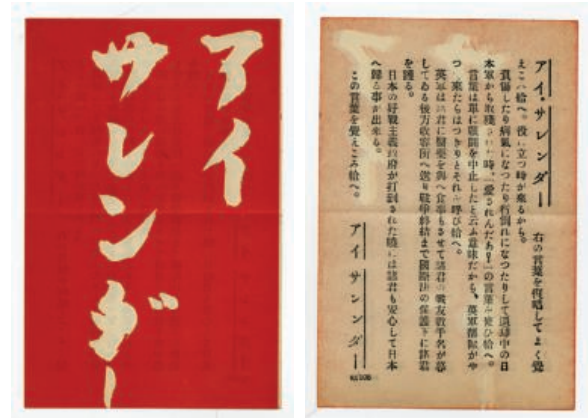 アイ
サレンダー
アイ・サレンダー
右の言葉を復唱してよく覺
えこみ給へ。役に立つ時が來るから。
負傷したり病氣になつたり行倒れになつたりして退却中の日
本軍から取殘された時、「愛されんだあ!」の言葉を使ひ給へ。
言葉は單に戰鬪を中止したと云ふ意味だから、英軍部隊がや
つて來たらはつきりとそれを呼び給へ。
英軍は諸君に醫藥を與へ食事もさせて諸君の戰友數千名が暮
してゐる後方收容所へ送り戰爭終結まで國際法の保護下に諸君
を護る。
日本の好戰主義政府が打倒された曉には諸君も安心して日本
へ歸る事が出來る。
この言葉を覺えこみ給へ。
アイ サレンダー